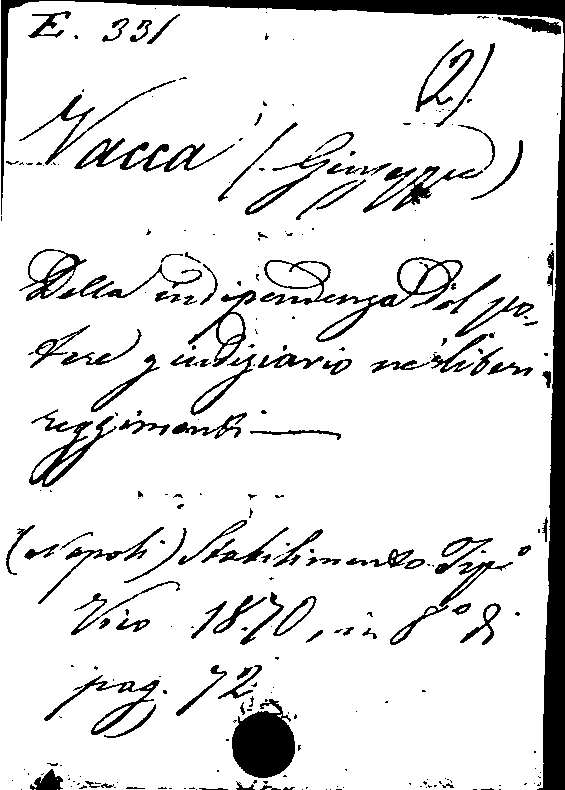 E. 331
(2).
Vacca (Giuseppe)
Della indipendenza del po-
tere giudiziario ne' liberi
reggimenti —
(Napoli) Stabilimento Tip.°
Vico 1870, in 8° di
pag. 72